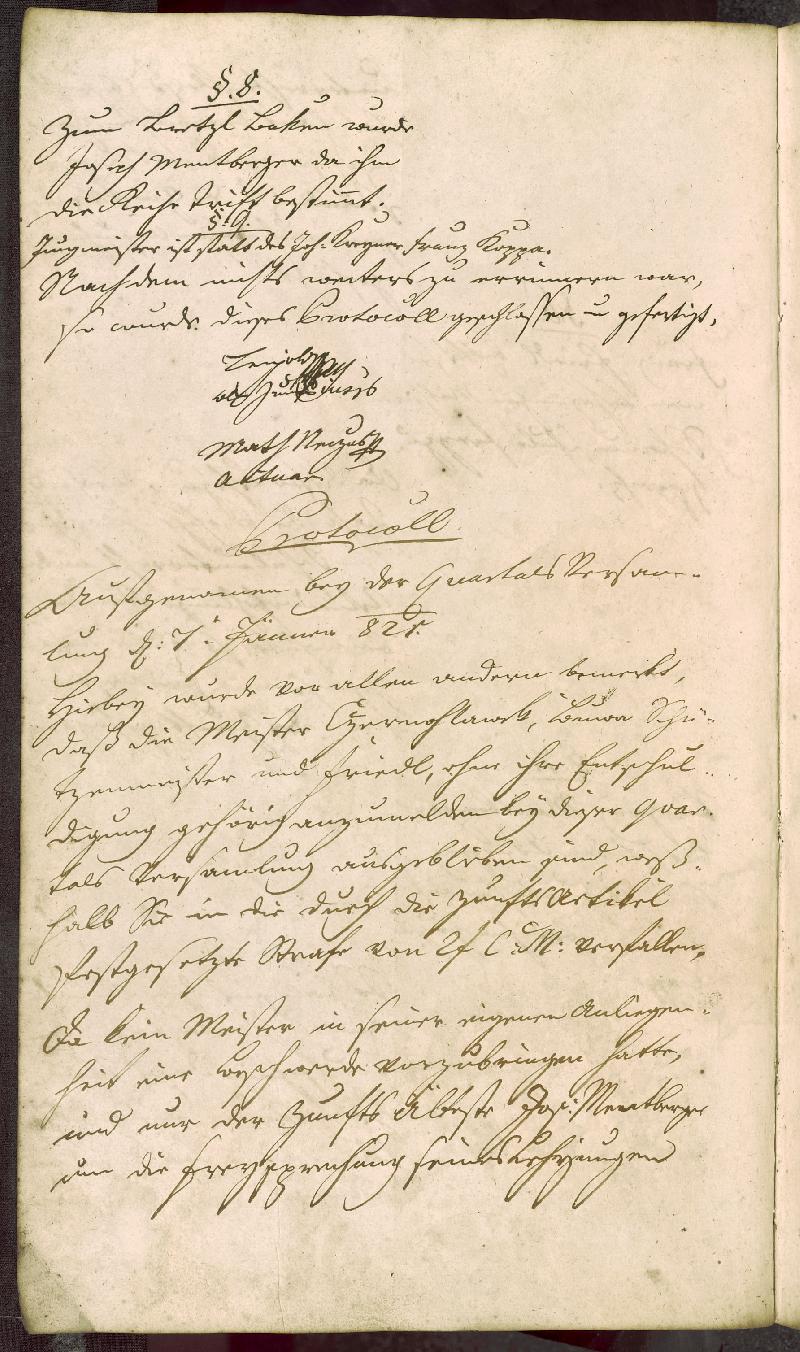 §. 8.
Zum Bretzl Baken wurde
Joseph Mentberger da ihm
die Reihe trift bestimt.
§. 9.
Jungmeister ist statt des Joh: Franz Koppa.
Nachdem nichts weiters zu errinnern war,
so wurde dieses Protocoll geschlossen u gefertigt,
Leopold
als
Math
Aktuar
Protocoll
Aufgenomen bey der Quartals Versam-
lung d: 7t Jänner 821.
Hiebey wurde vor allen andern bemerkt,
daß die Meister Czernohlawek, Schü-
tzenmeister und Friedl, ohne ihre Entschul-
digung gehörig anzumelden bey dieser Quar-
tals Versamlung ausgeblieben sind, weß-
halb Sie in die durch die Zunfts Artikel
festgesetzte Strafe von 2f C: M: verfallen,
Da kein Meister in seiner eigenen Anliegen-
heit eine Beschwerde vorzubringen hatte,
und nur der Zunfts Älteste Jos: Mentberger
um die Freysprechung seines Lehrjungen